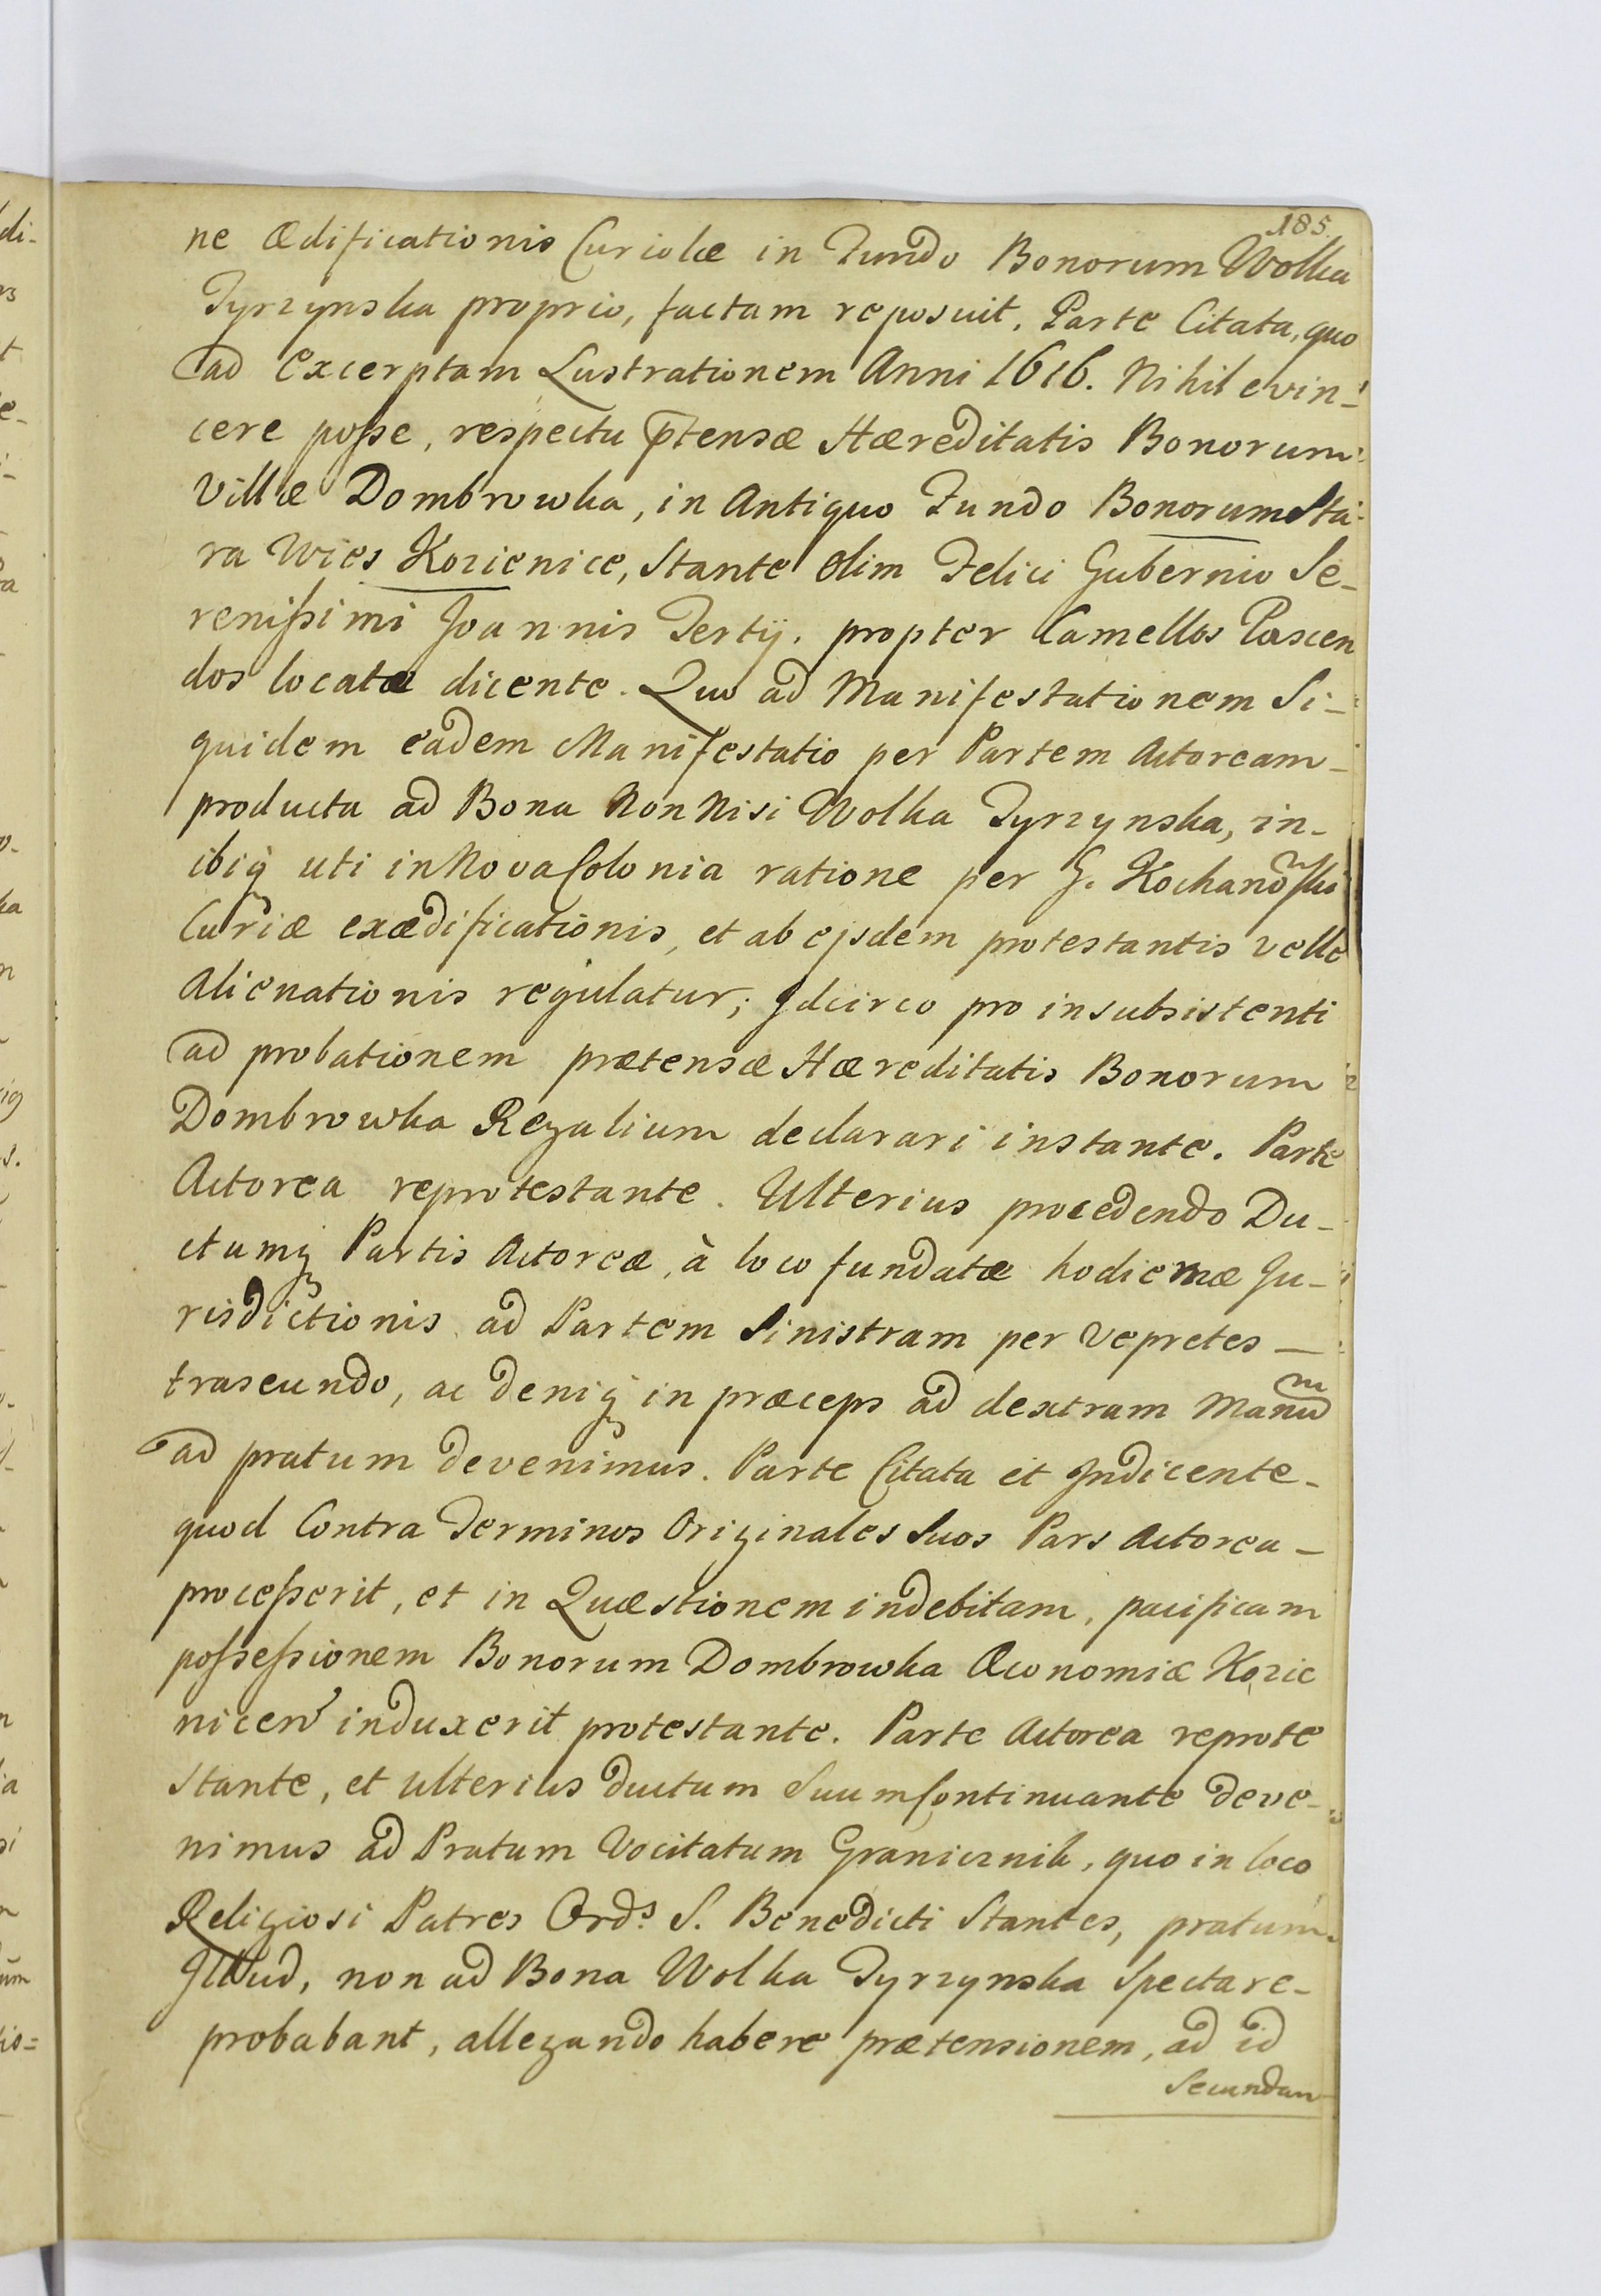 185.
ne Ædificationis Curiolæ in Fundo Bonorum Wolka
Tyrzynska proprio, factam reposuit, Parte Citata, quo
ad Excerptam Lustrationem Anni 1616. Nihil evin-
cere posse, respectu p̄tensæ Hæreditatis Bonorum
Villæ Dombrowka, in Antiquo Fundo Bonorum Sta-
ra Wies Kozienice, Stante olim Felici Gubernio Se-
renissimi Joannis Tertij. propter Camellos Pascen
dos locatæ dicente. Quo ad Manifestationem Si-
quidem eadem Manifestatio per Partem Actoream-
producta ad Bona Non Nisi Wolka Tyrzynska, in-
ibiq̃ uti in Nova Colonia ratione per G. Kochanowski
Curiæ exædificationis, et ab ejsdem protestantis velle
Alienationis regulatur; Idcirco pro insubsistenti
ad probationem prætensæ Hæreditatis Bonorum
Dombrowka Regalium declarari instante. Parte
Actorea reprotestante. Ulterius procedendo Du-
ctumq̃ Partis Actoreæ, à loco fundatæ hodiernæ Ju-
risdictionis ad Partem Sinistram per Vepretes -
traseundo, ac deniq̃ in præceps ad dextram Manum
ad pratum devenimus. Parte Citata et Indicente-
quod Contra Terminos Originales Suos Pars Actorea -
processerit, et in Quæstionem indebitam, pacificam
possessionem Bonorum Dombrowka Œconomiæ Kozie
nicen̄ induxerit protestante. Parte Actorea reprote
stante, et ulterius ductum Suum Continuante deve-
nimus ad Pratum Vocitatum Granicznik, quo in loco
Religiosi Patres Ord.s S. Benedicti Stantes, pratum
Illud, non ad Bona Wolka Tyrzynska Spectare-
probabant, allegando habere prætensionem, ad id
Secundum